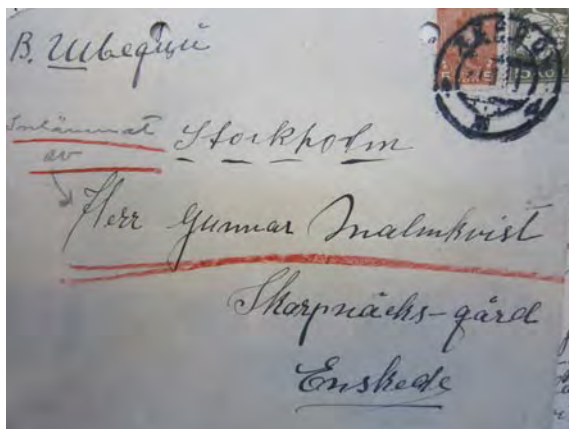 В. Швецций
Inlämnat
av
Stockholm
Herr Gunnar Malmkvist
Skarpnäcks-gård
Enskede